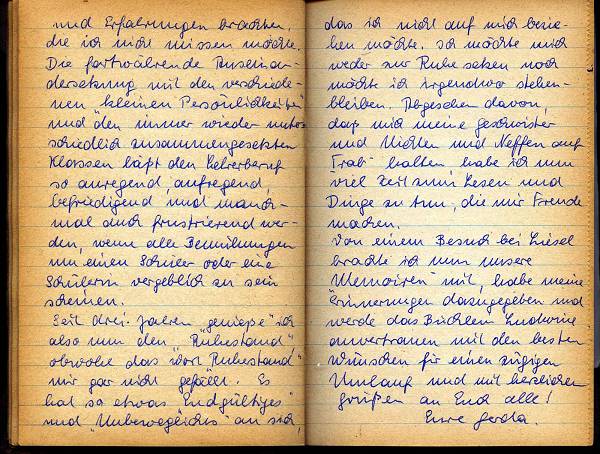 und Erfahrungen brachten,
die ich nicht missen möchte.
Die fortwährende Auseinan-
dersetzung mit den verschiede-
nen kleinen "Persönlichkeiten"
und den immer wieder unter-
schiedlich zusammengesetzten
Klassen läßt den Lehrerberuf
so anregend, aufregend,
befriedigend und manch-
mal auch frustrierend wer-
den, wenn alle Bemühungen
um einen Schüler oder eine
Schülerin vergeblich zu sein
scheinen.
Seit drei Jahren "genieße" ich
also nun den "Ruhestand"
obwohl das Wort "Ruhestand"
mir gar nicht gefällt. Es
hat so etwas "Endgültiges"
und "Unbewegliches" an sich,
das ich nicht auf mich bezie-
hen möchte. Ich möchte mich
weder zur Ruhe setzen noch
möchte ich irgendwo stehen-
bleiben. Abgesehen davon,
daß mich meine Geschwister
und Nichten und Neffen auf
"Trab" halten habe ich nun
viel Zeit zum Lesen und
Dinge zu tun, die mir Freude
machen.
Von einem Besuch bei Liesel
brachte ich nun unsere
"Memoiren" mit, habe meine
Erinnerungen dazugegeben und
werde das Büchlein
anvertrauen mit den besten
Wünschen für einen zügigen
Umlauf und mit herzlichen
Grüßen an Euch alle!
Eure Gerda.